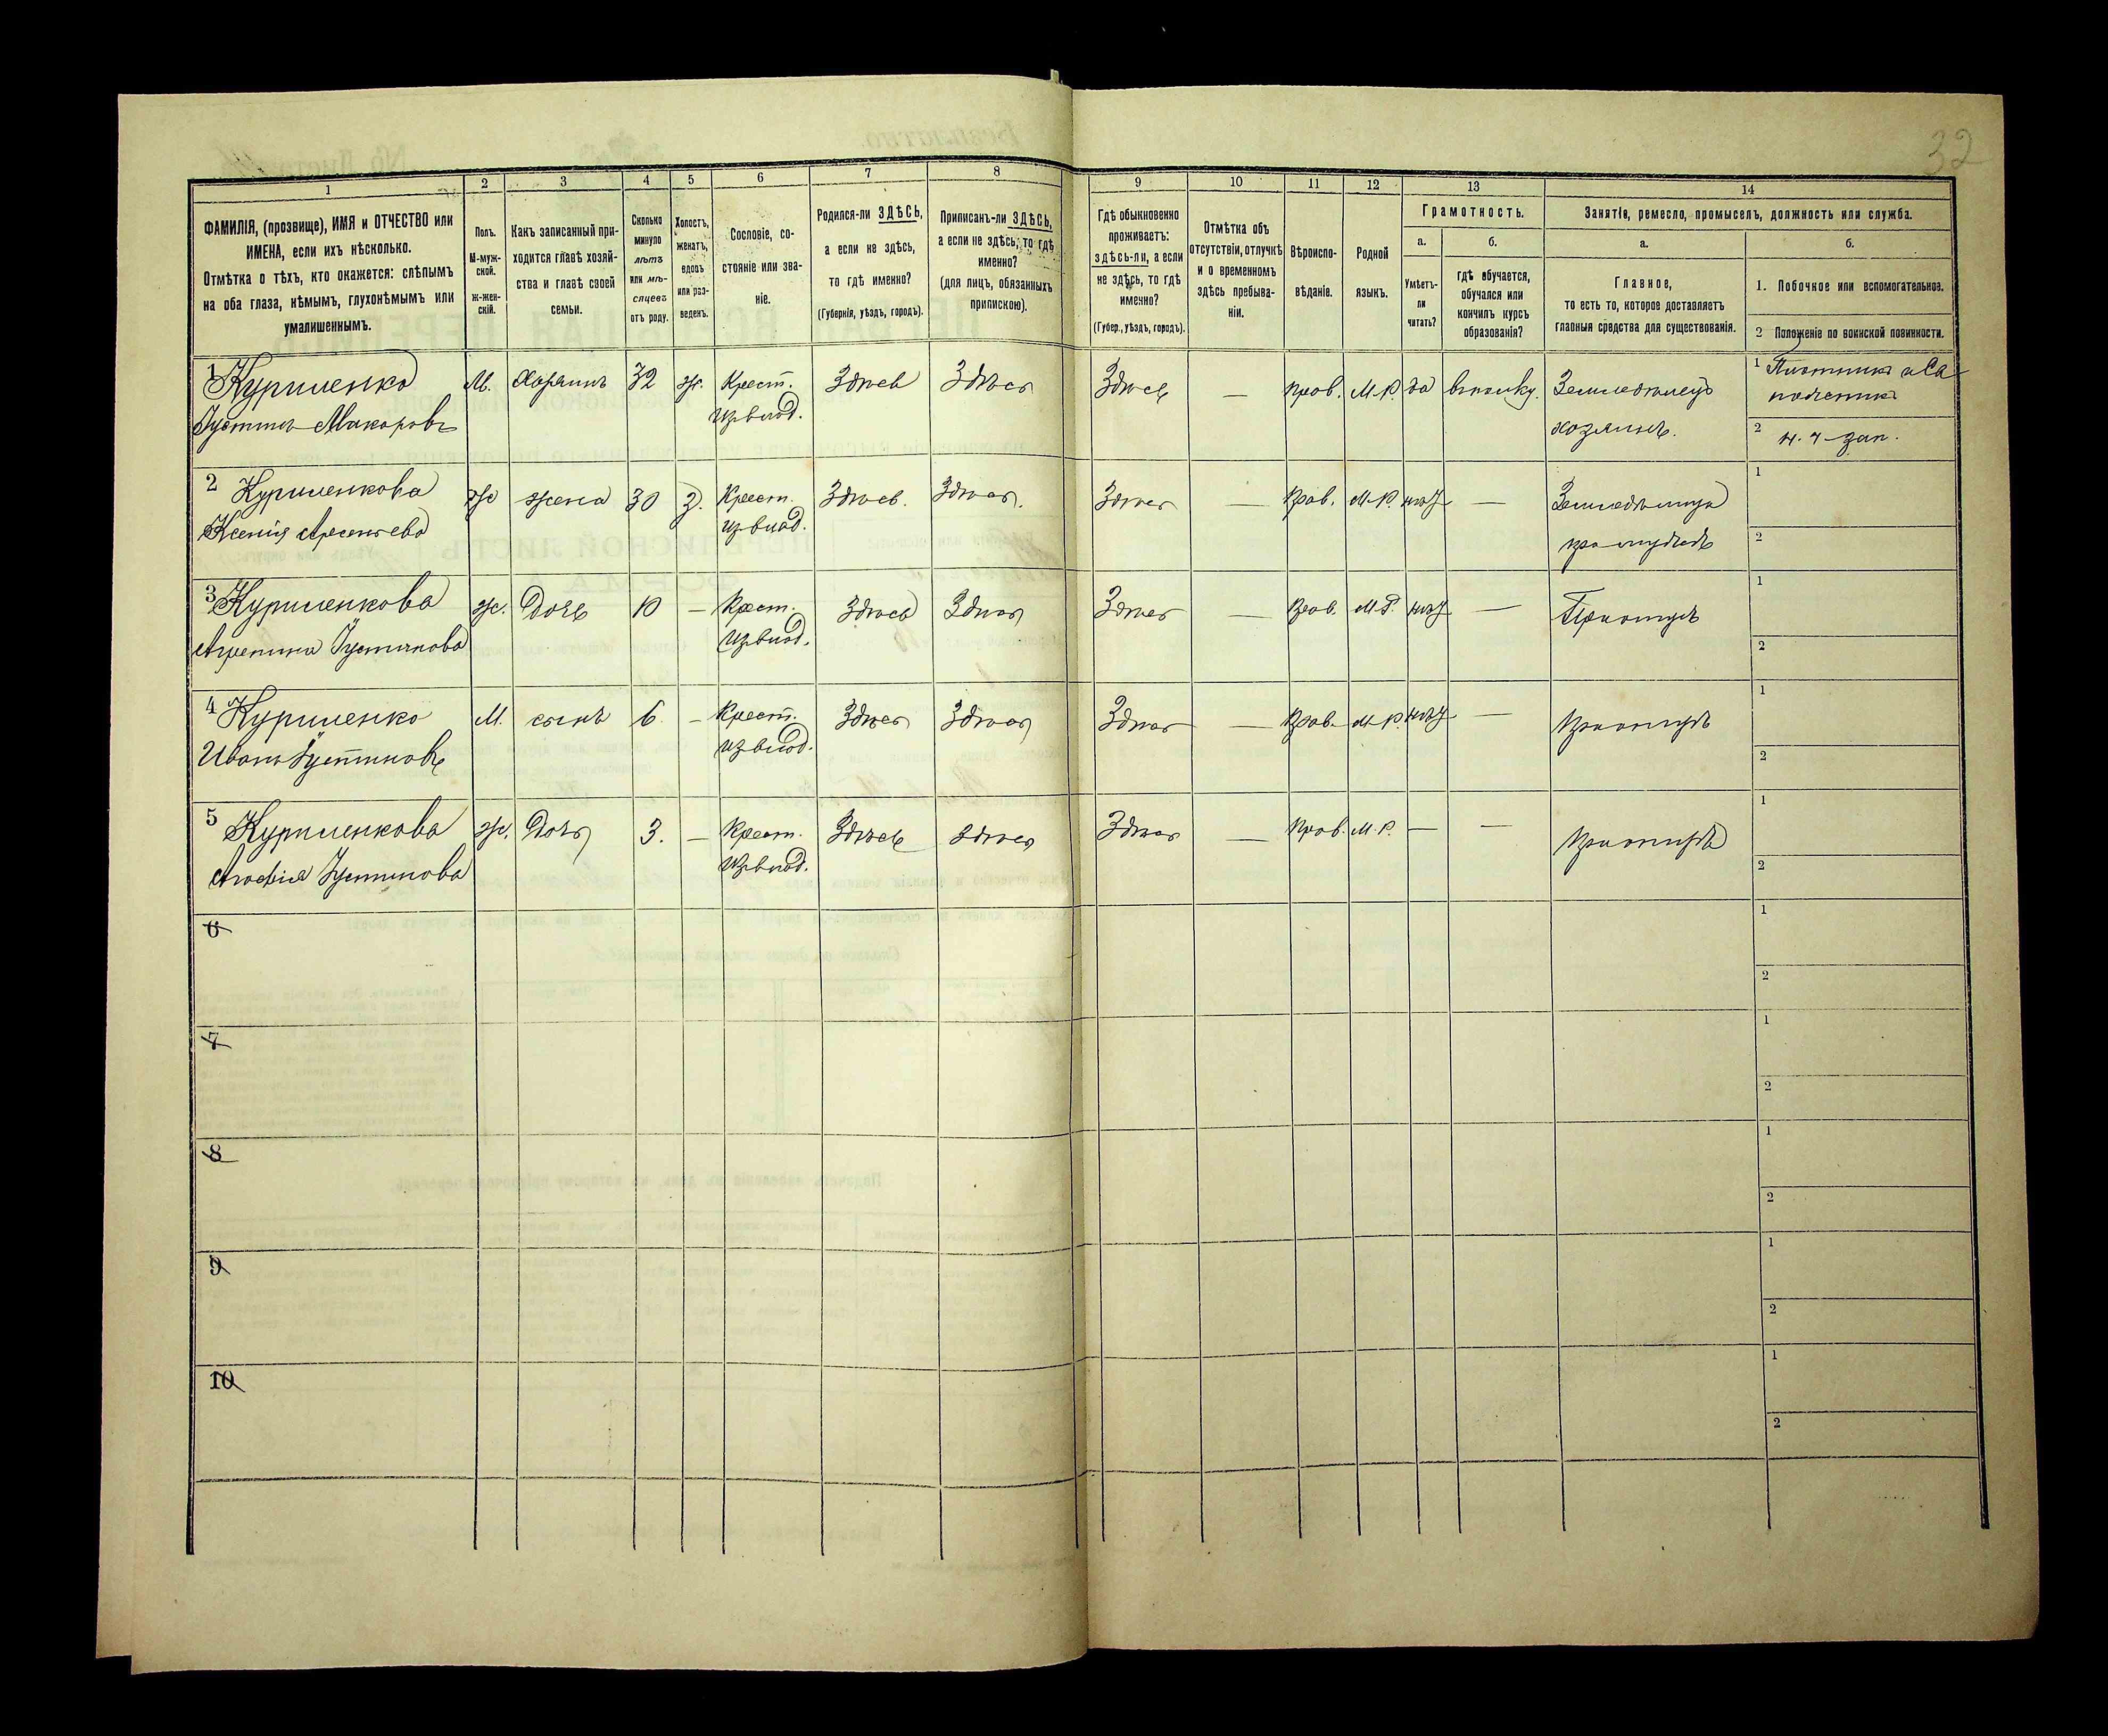 32
1 2 3 4 5 6 7 8 9 10 11 12 13 14
ФАМИЛІЯ, (прозвище), ИМЯ и ОТЧЕСТВО или
ИМЕНА, если ихъ нѣсколько.
Отмѣтка о тѣхъ, кто окажется: слѣпымъ
на оба глаза, нѣмымъ, глухонѣмымъ или
умалишеннымъ.
Полъ.
М-муж-
ской.
Ж-жен-
скій.
Какъ записанный при-
ходится главѣ хозяй-
ства и главѣ своей
семьи.
Сколько
минуло
лѣтъ
или мѣ-
сяцевъ
отъ роду.
Холостъ,
женатъ,
вдовъ
или раз-
веденъ.
Сословіе, со-
стояніе или зва-
ніе.
Родился-ли ЗДѢСЬ,
а если не здѣсь,
то гдѣ именно?
(Губернія, уѣздъ, городъ).
Приписанъ-ли ЗДѢСЬ,
а если не здѣсь, то гдѣ
именно?
(для лицъ, обязанныхъ
припискою).
Гдѣ обыкновенно
проживаетъ:
здѣсь-ли, а если
не здѣсь, то гдѣ
именно?
(Губер., уѣздъ, городъ).
Отмѣтка объ
отсутствіи, отлучкѣ
и о временномъ
здѣсь пребыва-
ніи.
Вѣроиспо-
вѣданіе.
Родной
языкъ.
Грамотность.
а.
Умѣетъ-
ли
читать?
б.
гдѣ обучается,
обучался или
кончилъ курсъ
образованія?
Занятіе, ремесло, промыселъ, должность или служба.
а.
Главное,
то есть то, которое доставляетъ
главныя средства для существованія.
б.
1. Побочное или вспомогательное.
2 Положеніе по воинской повинности.
1 Куриленко М. Хозяинъ 32 ж. Крест. Здѣсь Здѣсь Здѣсь — прав. М.Р. да Земледѣлецъ 1 Плотникъ и Са
Густинъ Макаровъ из влад. хозяинъ. пожникъ
2
2 Куриленкова ж жена 30 з. Крест. Здѣсь. Здѣсь. Здѣсь — прав. М.Р. нѣт — 1
Ксенія Арсеньева из влад. 2
3 Куриленкова ж. Дочь 10 — Крест. Здѣсь Здѣсь Здѣсь — прав. М.Р. нѣт — 1
Агрепина Густинова из влад. 2
4 Куриленко М. сынъ 6 — Крест. Здѣсь Здѣсь Здѣсь — прав. М.Р. нѣт — 1
Иванъ Густиновъ из влад. 2
5 Куриленкова ж. Дочь 3. — Крест. Здѣсь Здѣсь Здѣсь — прав. М.Р. — — 1
Густинова из влад. 2
6 1
2
7 1
2
8 1
2
9 1
2
10 1
2